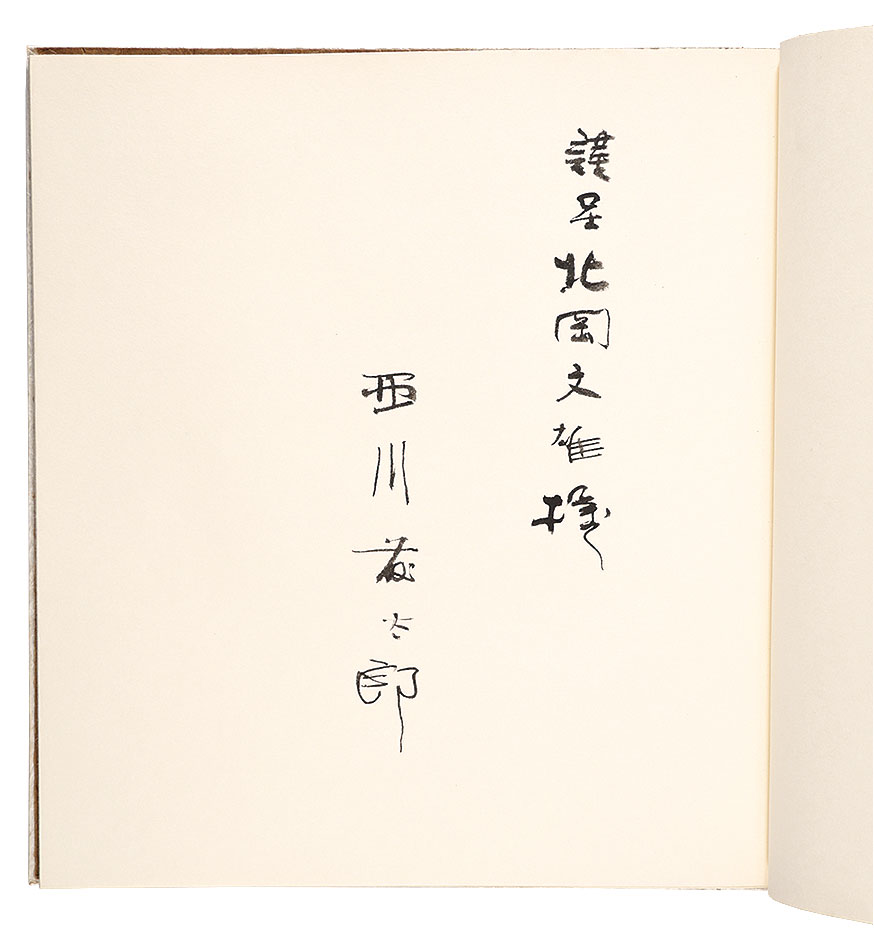 謹呈北岡文雄様
西川藤太郎